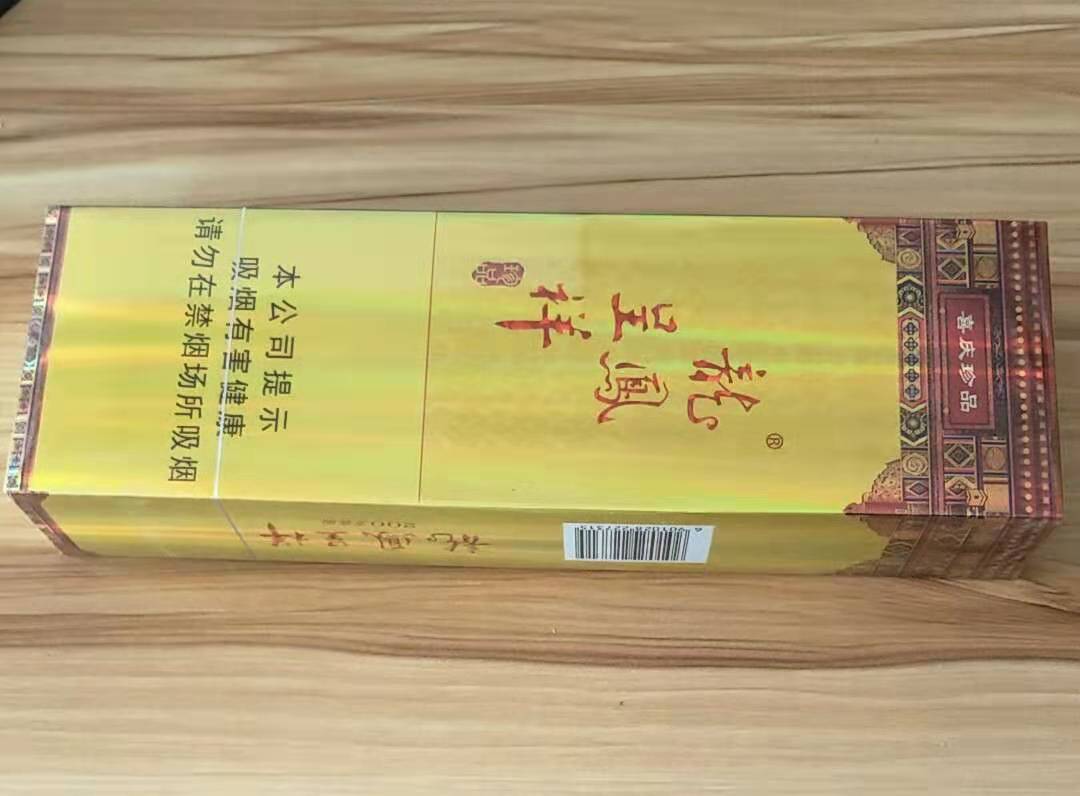 喜庆珍品
®
龍鳳呈祥
珍品
本公司提示
吸烟有害健康
请勿在禁烟场所吸烟
龍鳳呈祥